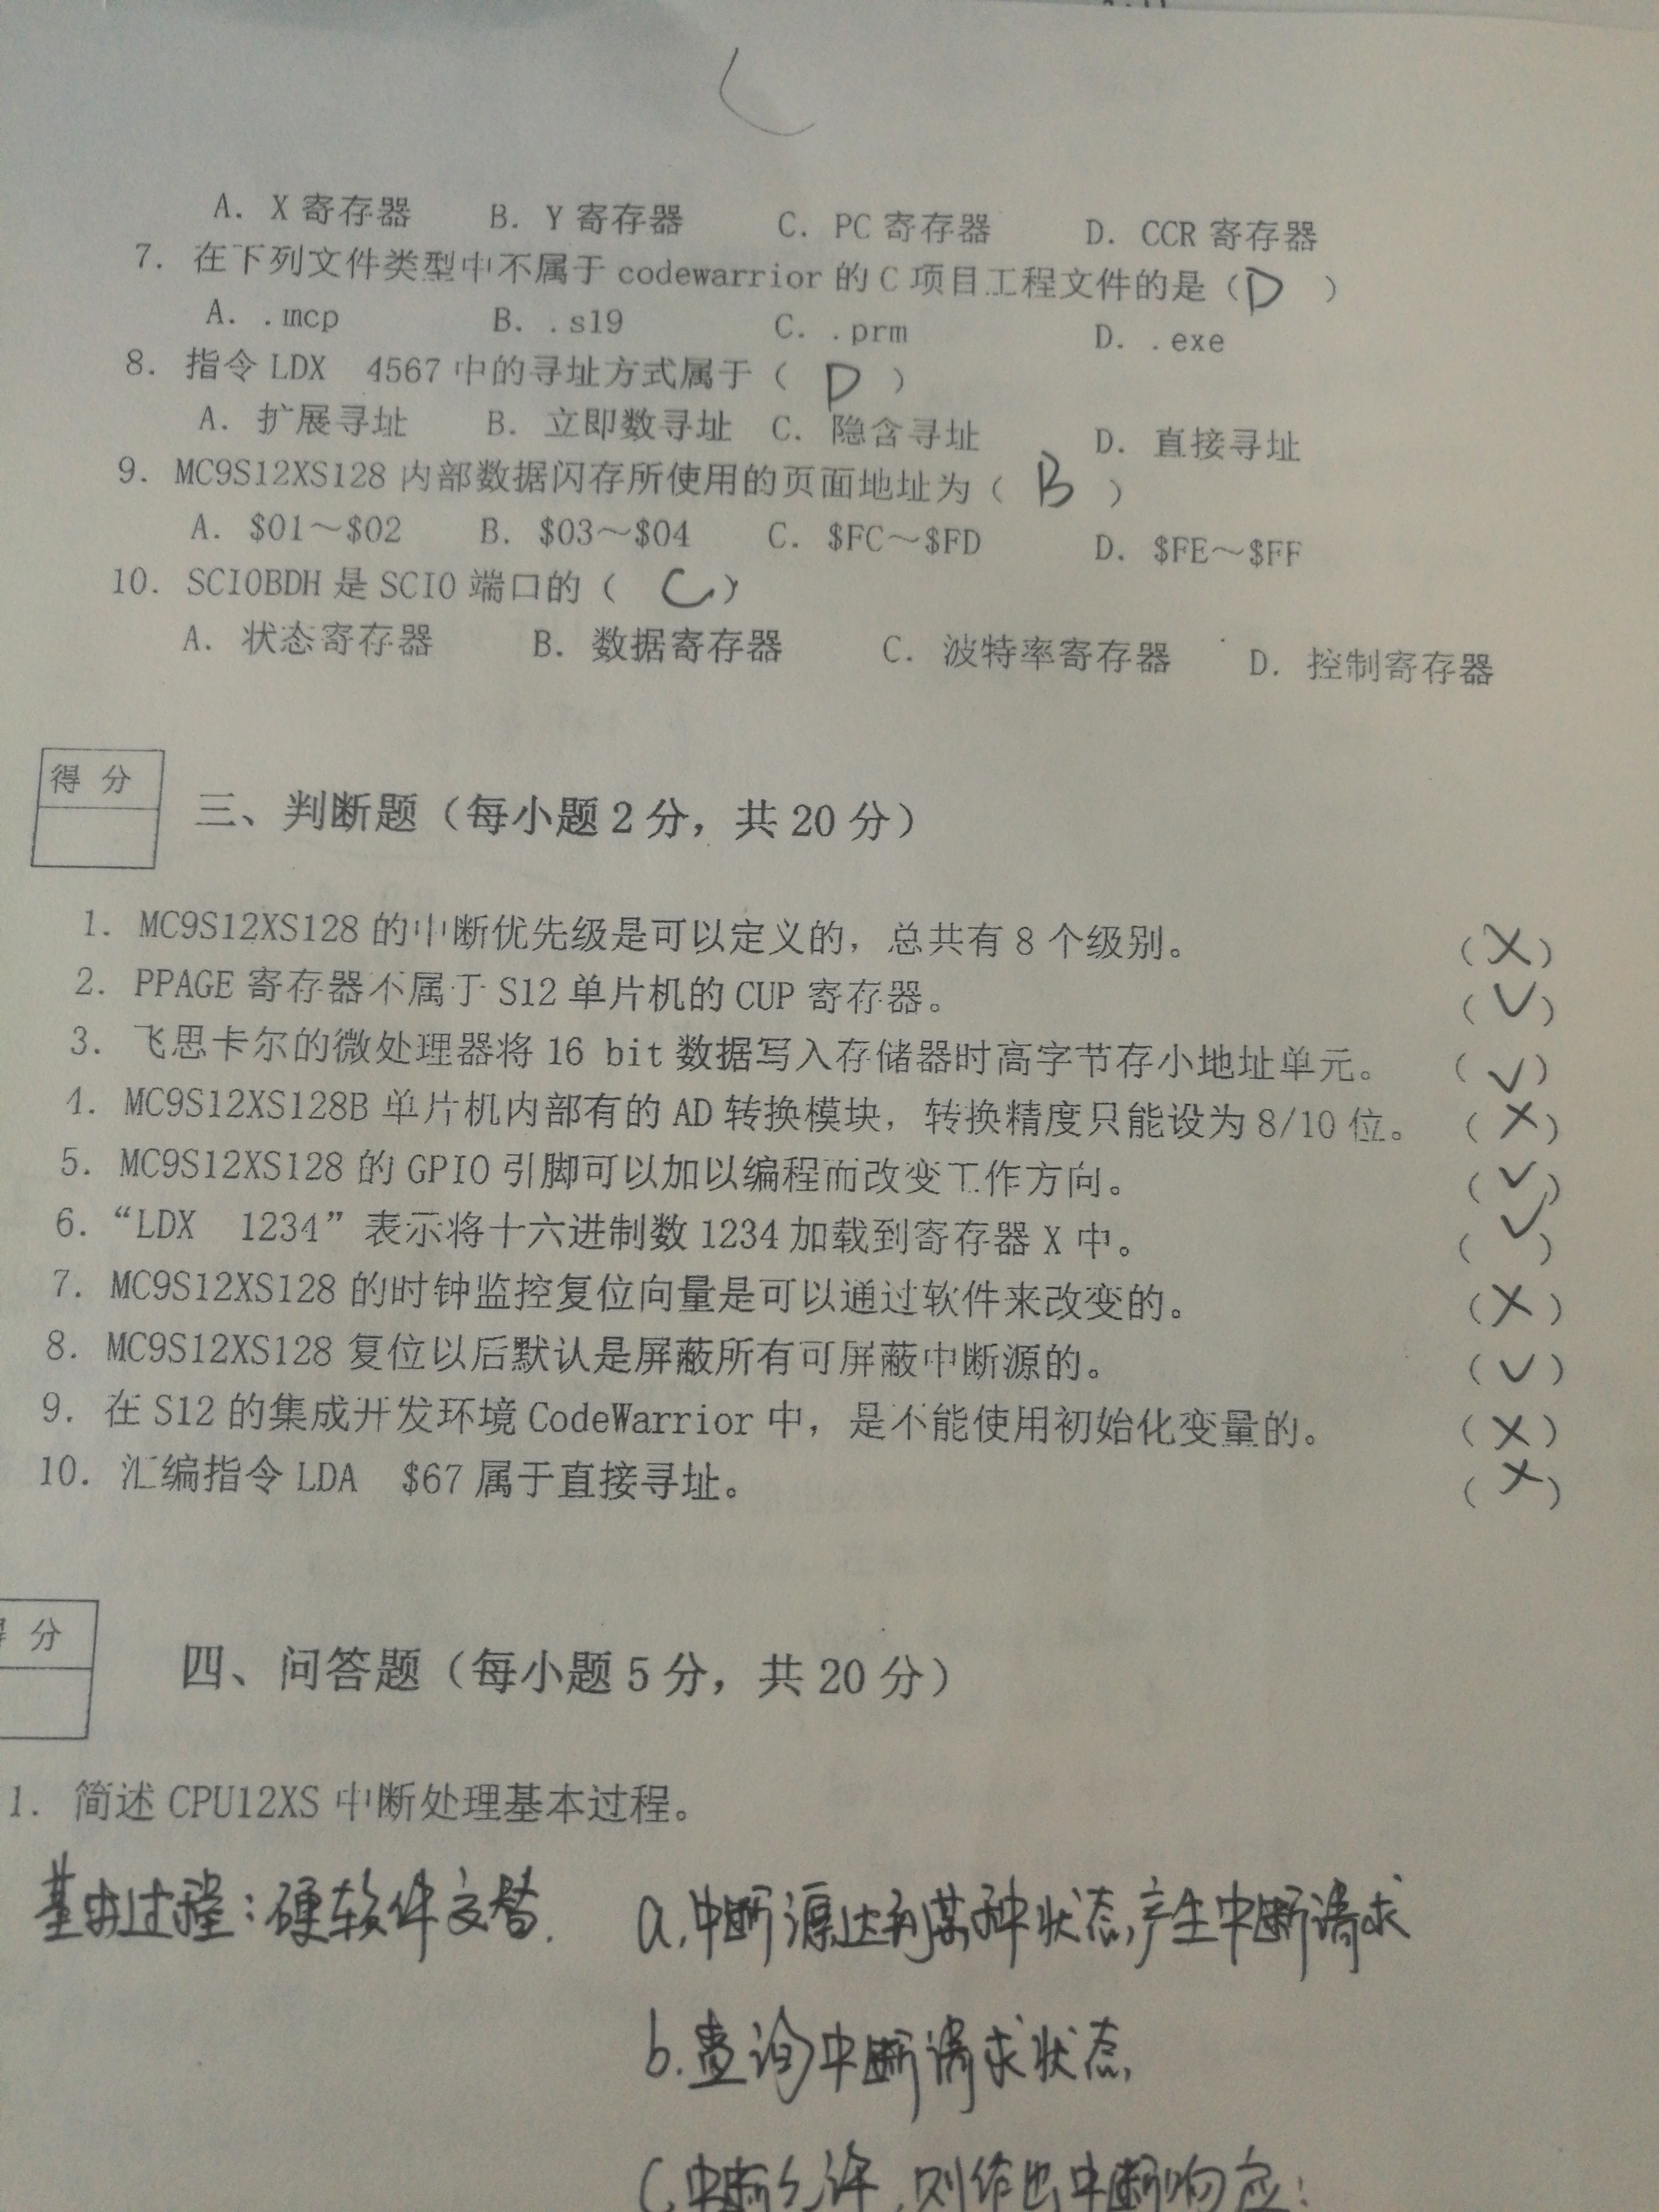 A. X 寄存器 B. Y 寄存器 C. PC 寄存器 D. CCR 寄存器
7. 在下列文件类型中不属于 codewarrior 的 C 项目工程文件的是（D ）
A. .mcp B. .s19 C. .prm D. .exe
8. 指令 LDX 4567 中的寻址方式属于（ D ）
A. 扩展寻址 B. 立即数寻址 C. 隐含寻址 D. 直接寻址
9. MC9S12XS128 内部数据闪存所使用的页面地址为（ B ）
A. $01～$02 B. $03～$04 C. $FC～$FD D. $FE～$FF
10. SCI0BDH 是 SCI0 端口的（ C）
A. 状态寄存器 B. 数据寄存器 C. 波特率寄存器 D. 控制寄存器
得 分
三、判断题（每小题 2 分，共 20 分）
1. MC9S12XS128 的中断优先级是可以定义的，总共有 8 个级别。 （×）
2. PPAGE 寄存器不属于 S12 单片机的 CUP 寄存器。 （√）
3. 飞思卡尔的微处理器将 16 bit 数据写入存储器时高字节存小地址单元。 （√）
4. MC9S12XS128B 单片机内部有的 AD 转换模块，转换精度只能设为 8/10 位。 （×）
5. MC9S12XS128 的 GPIO 引脚可以加以编程而改变工作方向。 （√）
6. “LDX 1234” 表示将十六进制数 1234 加载到寄存器 X 中。 （√）
7. MC9S12XS128 的时钟监控复位向量是可以通过软件来改变的。 （×）
8. MC9S12XS128 复位以后默认是屏蔽所有可屏蔽中断源的。 （√）
9. 在 S12 的集成开发环境 CodeWarrior 中，是不能使用初始化变量的。 （×）
10. 汇编指令 LDA $67 属于直接寻址。 （×）
分
四、问答题（每小题 5 分，共 20 分）
1. 简述 CPU12XS 中断处理基本过程。
基本过程：硬软件交替. a.中断源达到某种状态,产生中断请求
b.查询中断请求状态,
C.中断允许,则作出中断响应;